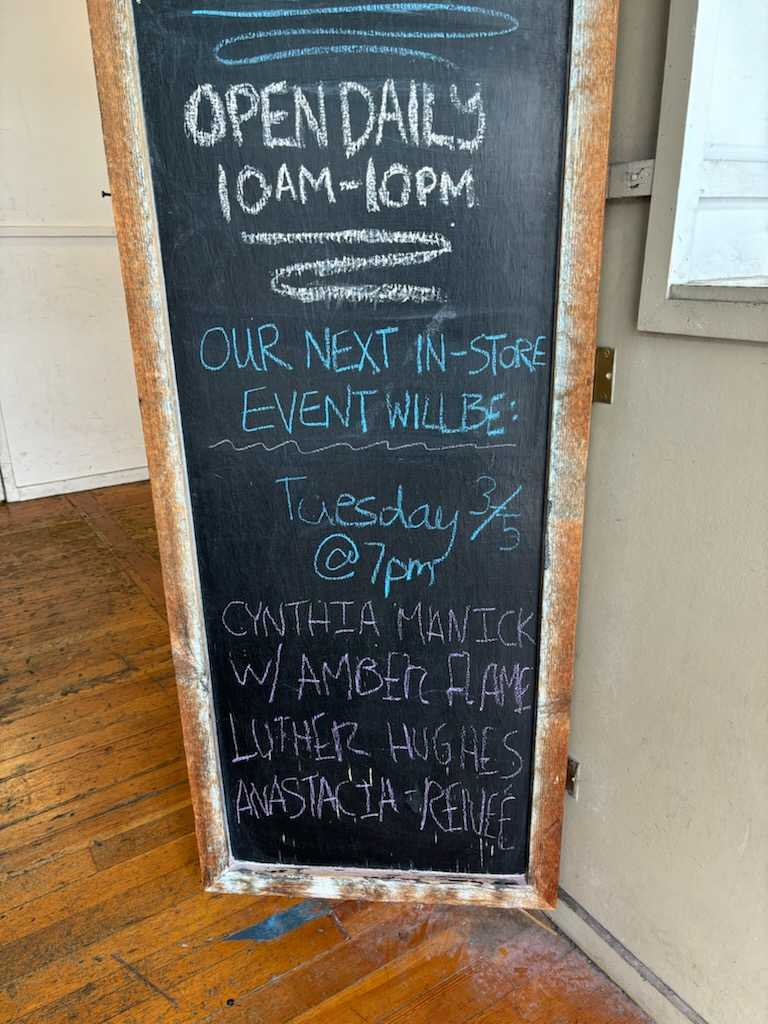 OPEN DAILY
10AM-10PM
OUR NEXT IN-STORE
EVENT WILL BE:
Tuesday 3/5
@7pm
CYNTHIA MANICK
W/ AMBER FLAME
LUTHER HUGHES
ANASTACIA-RENEÉ